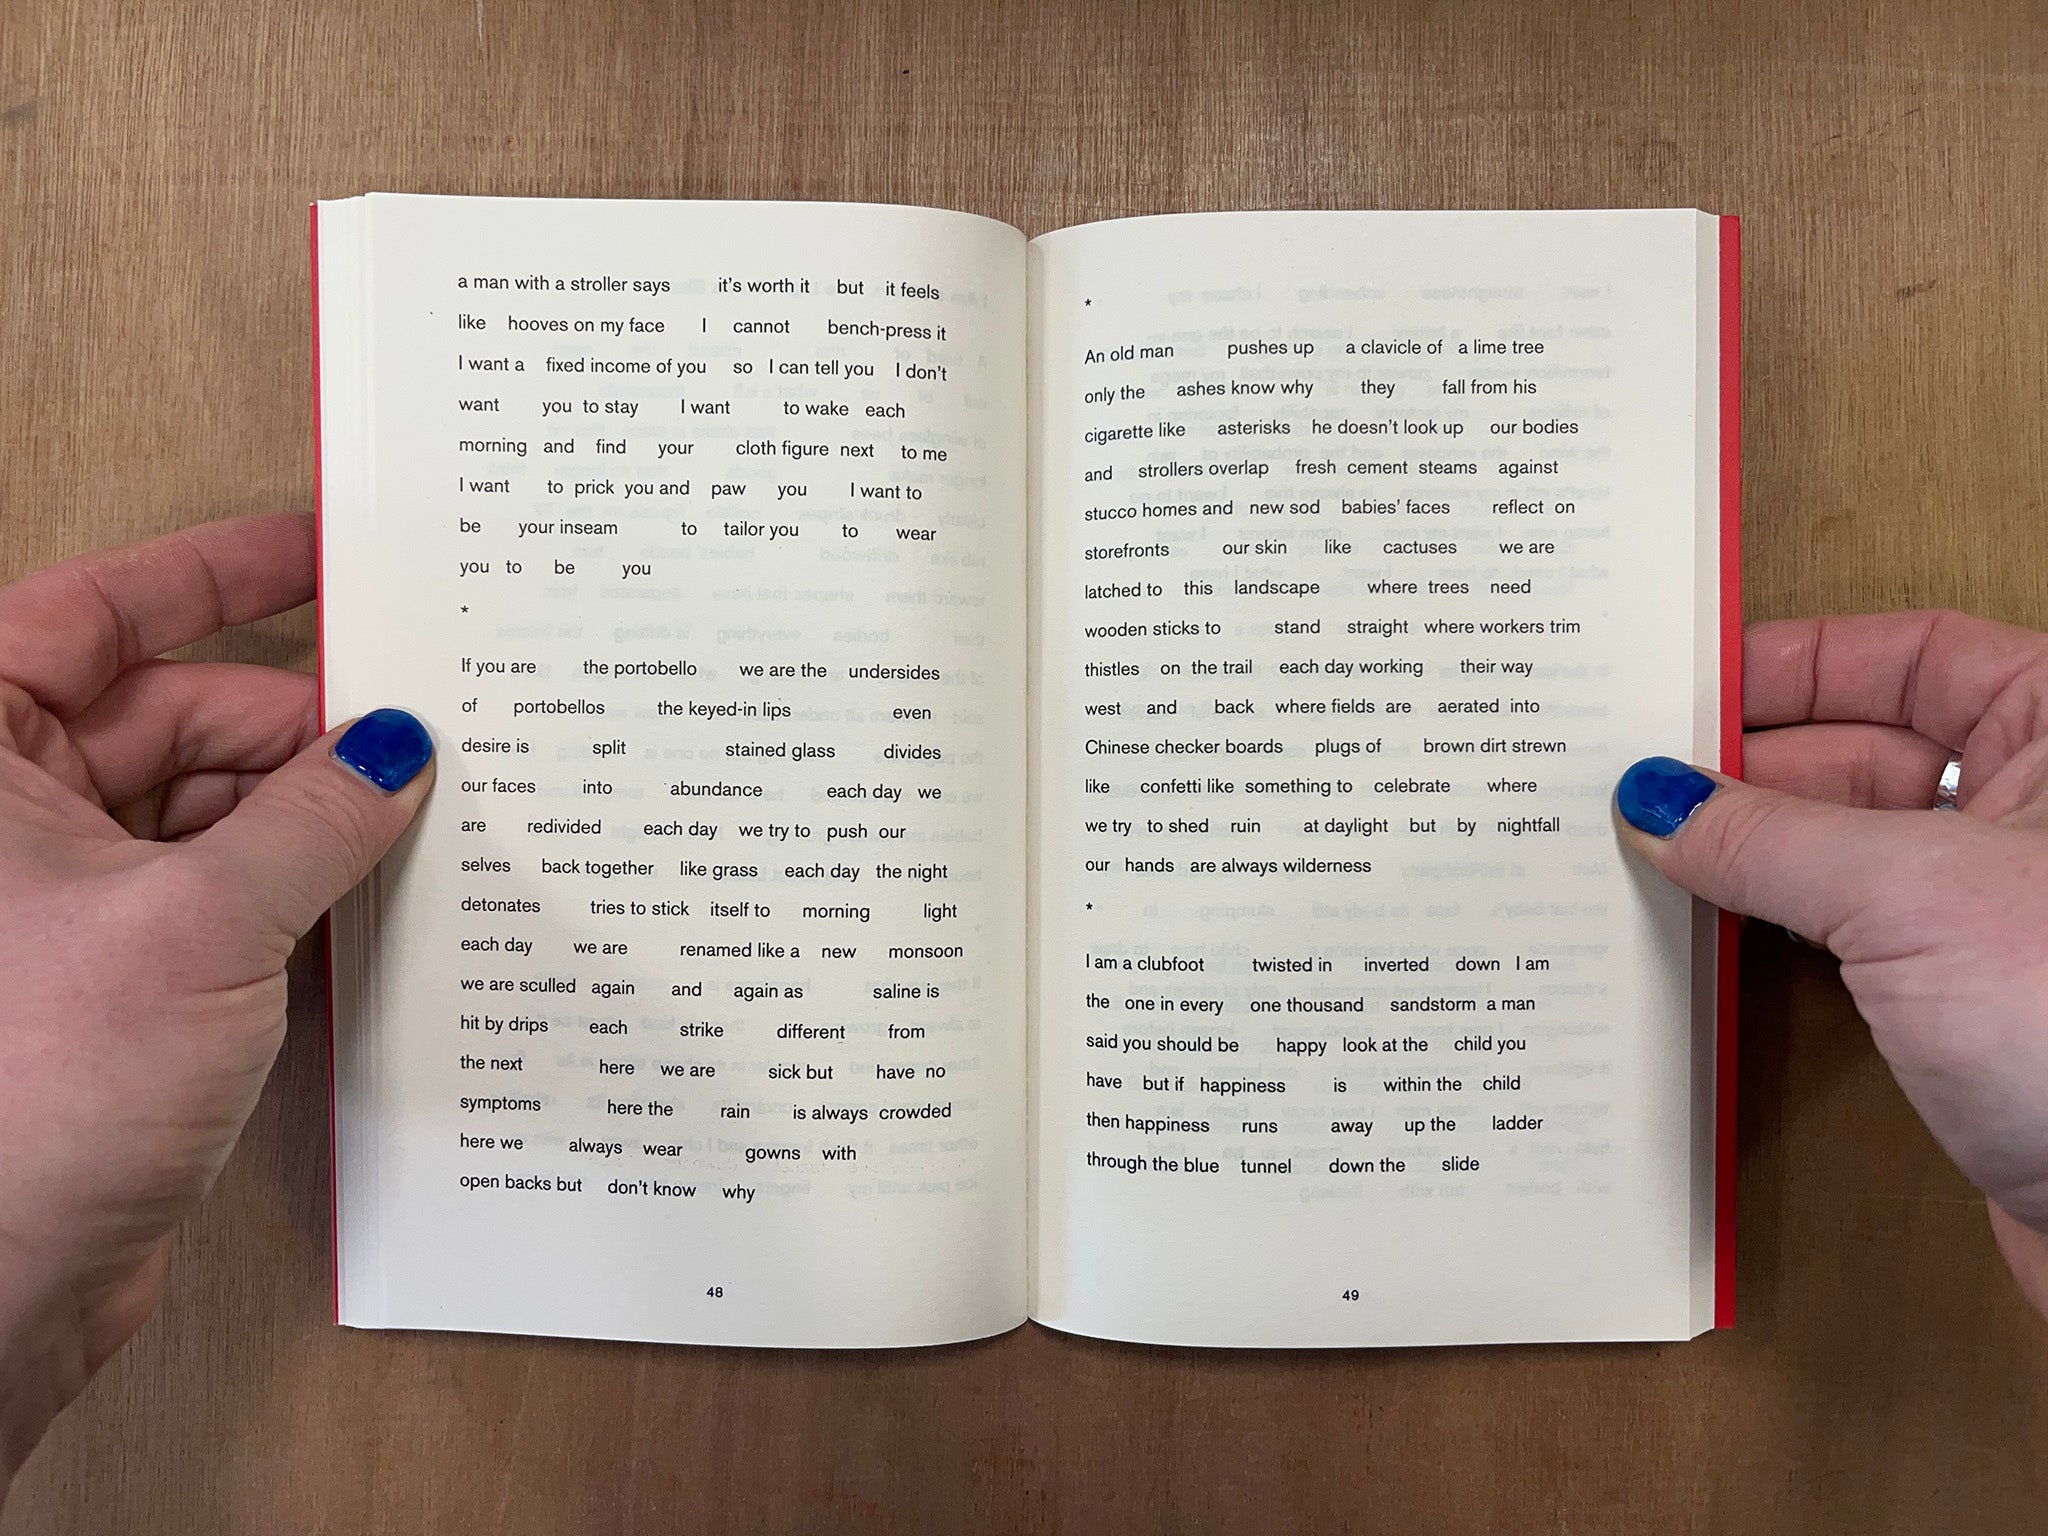 a man with a stroller says it's worth it but it feels
like hooves on my face I cannot bench-press it
I want a fixed income of you so I can tell you I don't
want you to stay I want to wake each
morning and find your cloth figure next to me
I want to prick you and paw you I want to
be your inseam to tailor you to wear
you to be you
*
If you are the portobello we are the undersides
of portobellos the keyed-in lips even
desire is split stained glass divides
our faces into abundance each day we
are redivided each day we try to push our
selves back together like grass each day the night
detonates tries to stick itself to morning light
each day we are renamed like a new monsoon
we are sculled again and again as saline is
hit by drips each strike different from
the next here we are sick but have no
symptoms here the rain is always crowded
here we always wear gowns with
open backs but don't know why
48
*
An old man pushes up a clavicle of a lime tree
only the ashes know why they fall from his
cigarette like asterisks he doesn't look up our bodies
and strollers overlap fresh cement steams against
stucco homes and new sod babies' faces reflect on
storefronts our skin like cactuses we are
latched to this landscape where trees need
wooden sticks to stand straight where workers trim
thistles on the trail each day working their way
west and back where fields are aerated into
Chinese checker boards plugs of brown dirt strewn
like confetti like something to celebrate where
we try to shed ruin at daylight but by nightfall
our hands are always wilderness
*
I am a clubfoot twisted in inverted down I am
the one in every one thousand sandstorm a man
said you should be happy look at the child you
have but if happiness is within the child
then happiness runs away up the ladder
through the blue tunnel down the slide
49